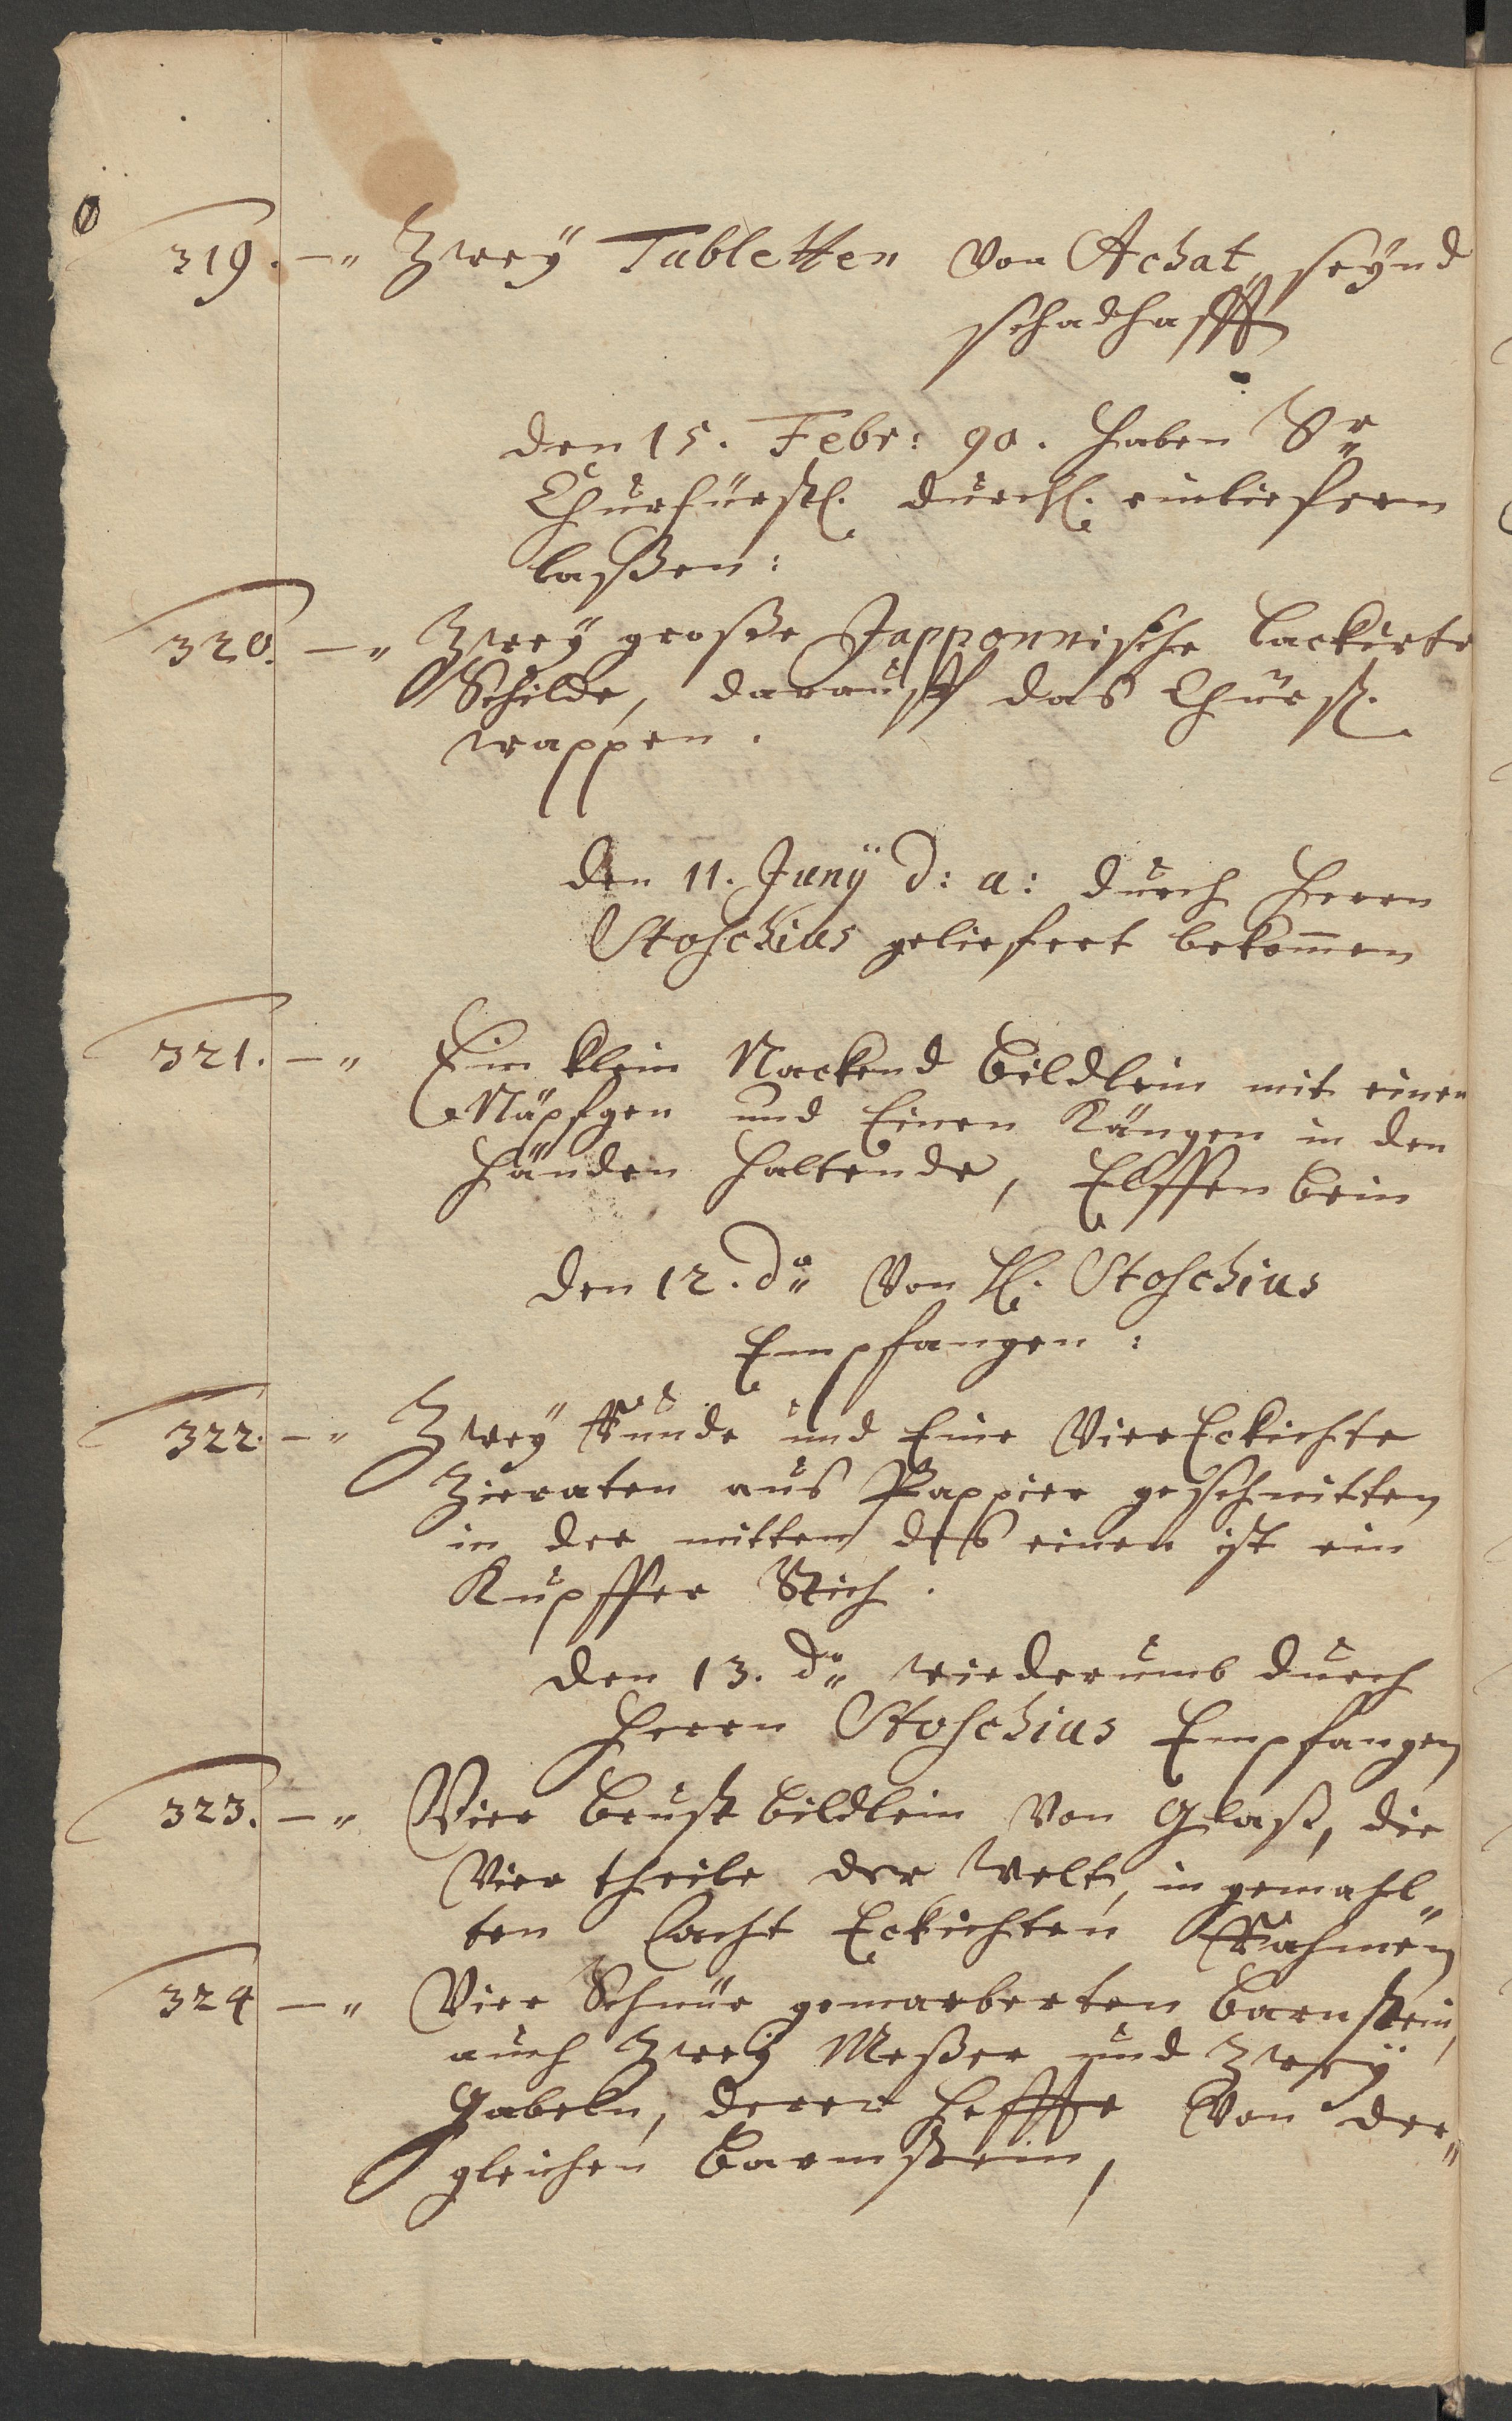 319. –„ Zweÿ Tabletten von Achat, seÿnd
schadhafft
den 15. Febr: 90. haben Sr.
Churfürstl. durchl. einliefern
laßen:
320. –„ Zweÿ große Japponnische lackirte
Schilde, darauff das Chürfl.
wappen.
den 11. Junÿ d: a: durch Herrn
Stoschius geliefert bekom̅en
321. –„ Ein klein Nackend bildlein mit einen
Näpfgen und Einen Kängen in den
händen haltende, Elffenbein
den 12. do von H. Stoschius
Empfangen:
322. –„ Zweÿ Runde und Eine Vier Eckichte
Zieraten aus Pappier geschnitten
in der mitten des einen ist ein
Kupffer Stich.
den 13. do wiederumb durch
Herrn Stoschius Empfangen
323. –„ Vier brust bildlein von Glaß, die
vier theile der Welt, in gemahl„
ten acht Eckichten Rahmen
324 –„ Vier Schnür gemarberten barnstein,
auch Zweÿ Meßer und Zweÿ
Gabeln, deren heffte von der„
gleichen barnstein,